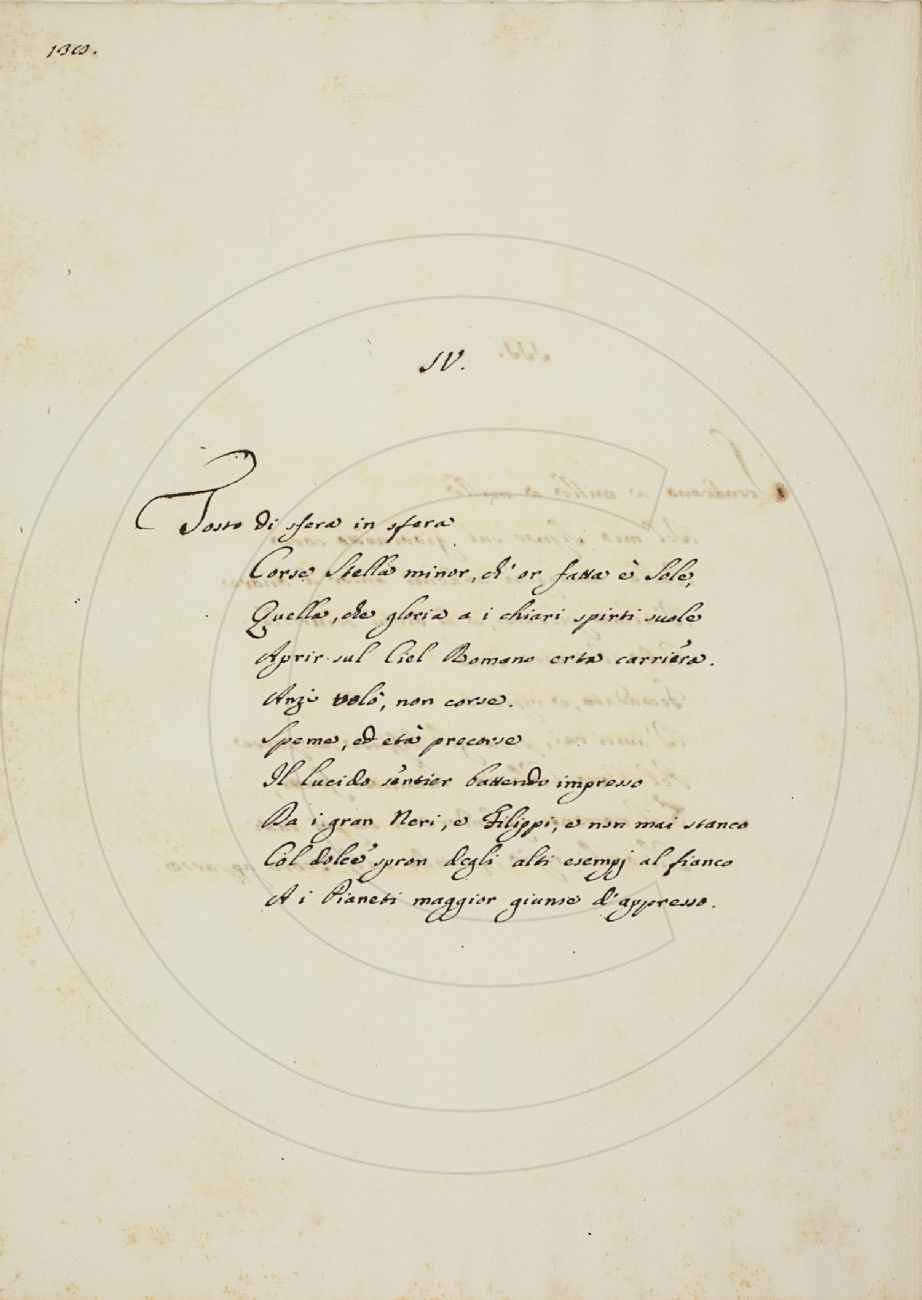 130.
IV.
Tosto di sfera in sfera
Corse Stella minor, ch'or fatta è Sole,
Quella, che gloria a i chiari spirti suole
Aprir sul Ciel Romano erta carriera.
Anzi volò, non corse.
Speme, ed età precorse
Il lucido sentier battendo impresso
Da i gran Neri, e Filippi, e non mai stanco
Col dolce spron degli alti esempj al fianco
A i Pianeti maggior giunse d'appresso.